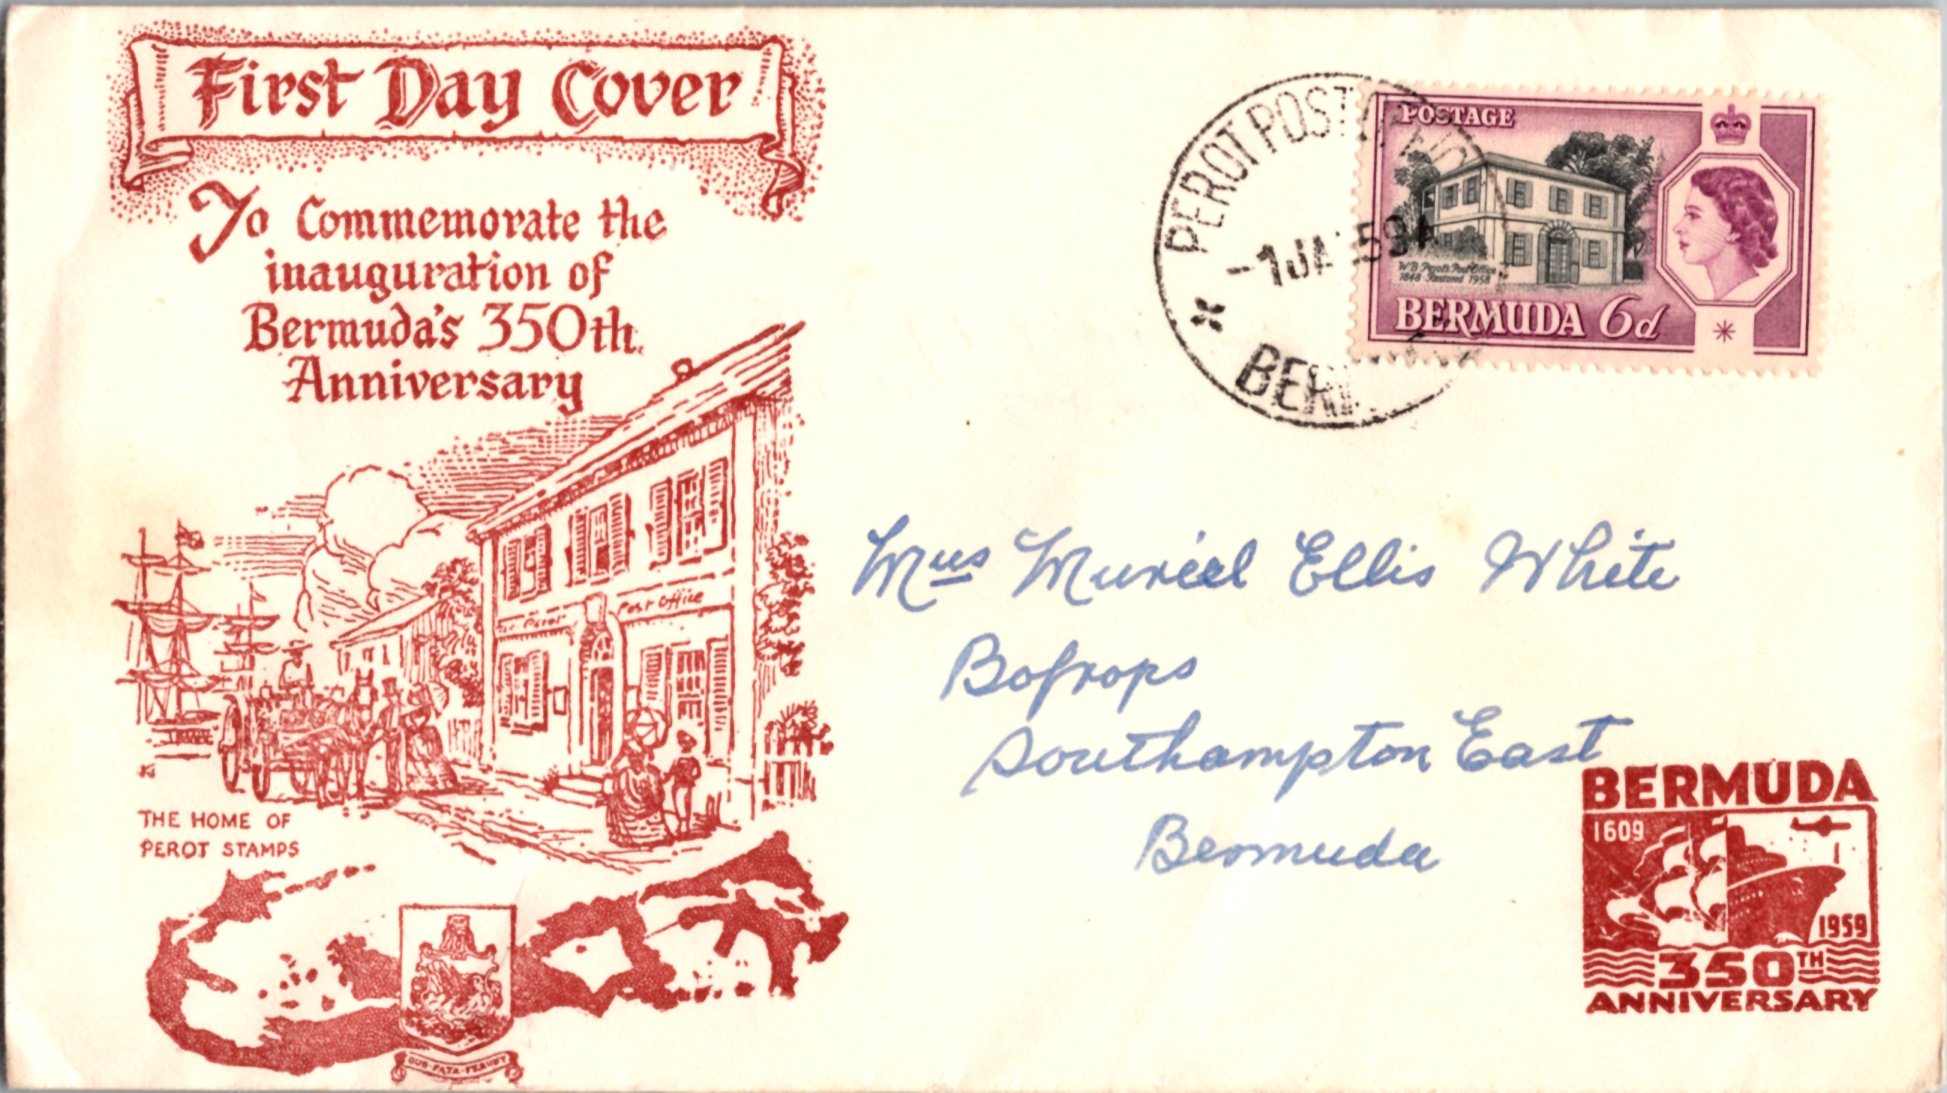 First Day Cover
To Commemorate the
inauguration of
Bermuda's 350th
Anniversary
Perot Post Office
THE HOME OF
PEROT STAMPS
QUO FATA FERUNT
PEROT POST
-1 JA 59
BER
POSTAGE
W B Perot's Post Office
1848 Restored 1958
BERMUDA 6d
Mrs Muriel Ellis White
Bofrops
Southampton East
Bermuda
BERMUDA
1609
1959
350TH
ANNIVERSARY